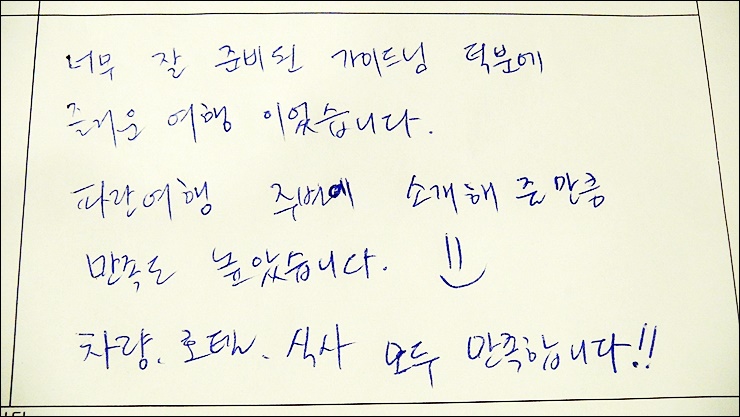 너무 잘 준비된 가이드님 덕분에
즐거운 여행 이었습니다.
파란여행 주변에 소개해 줄만큼
만족도 높았습니다. :)
차량. 호텔. 식사 모두 만족합니다!!